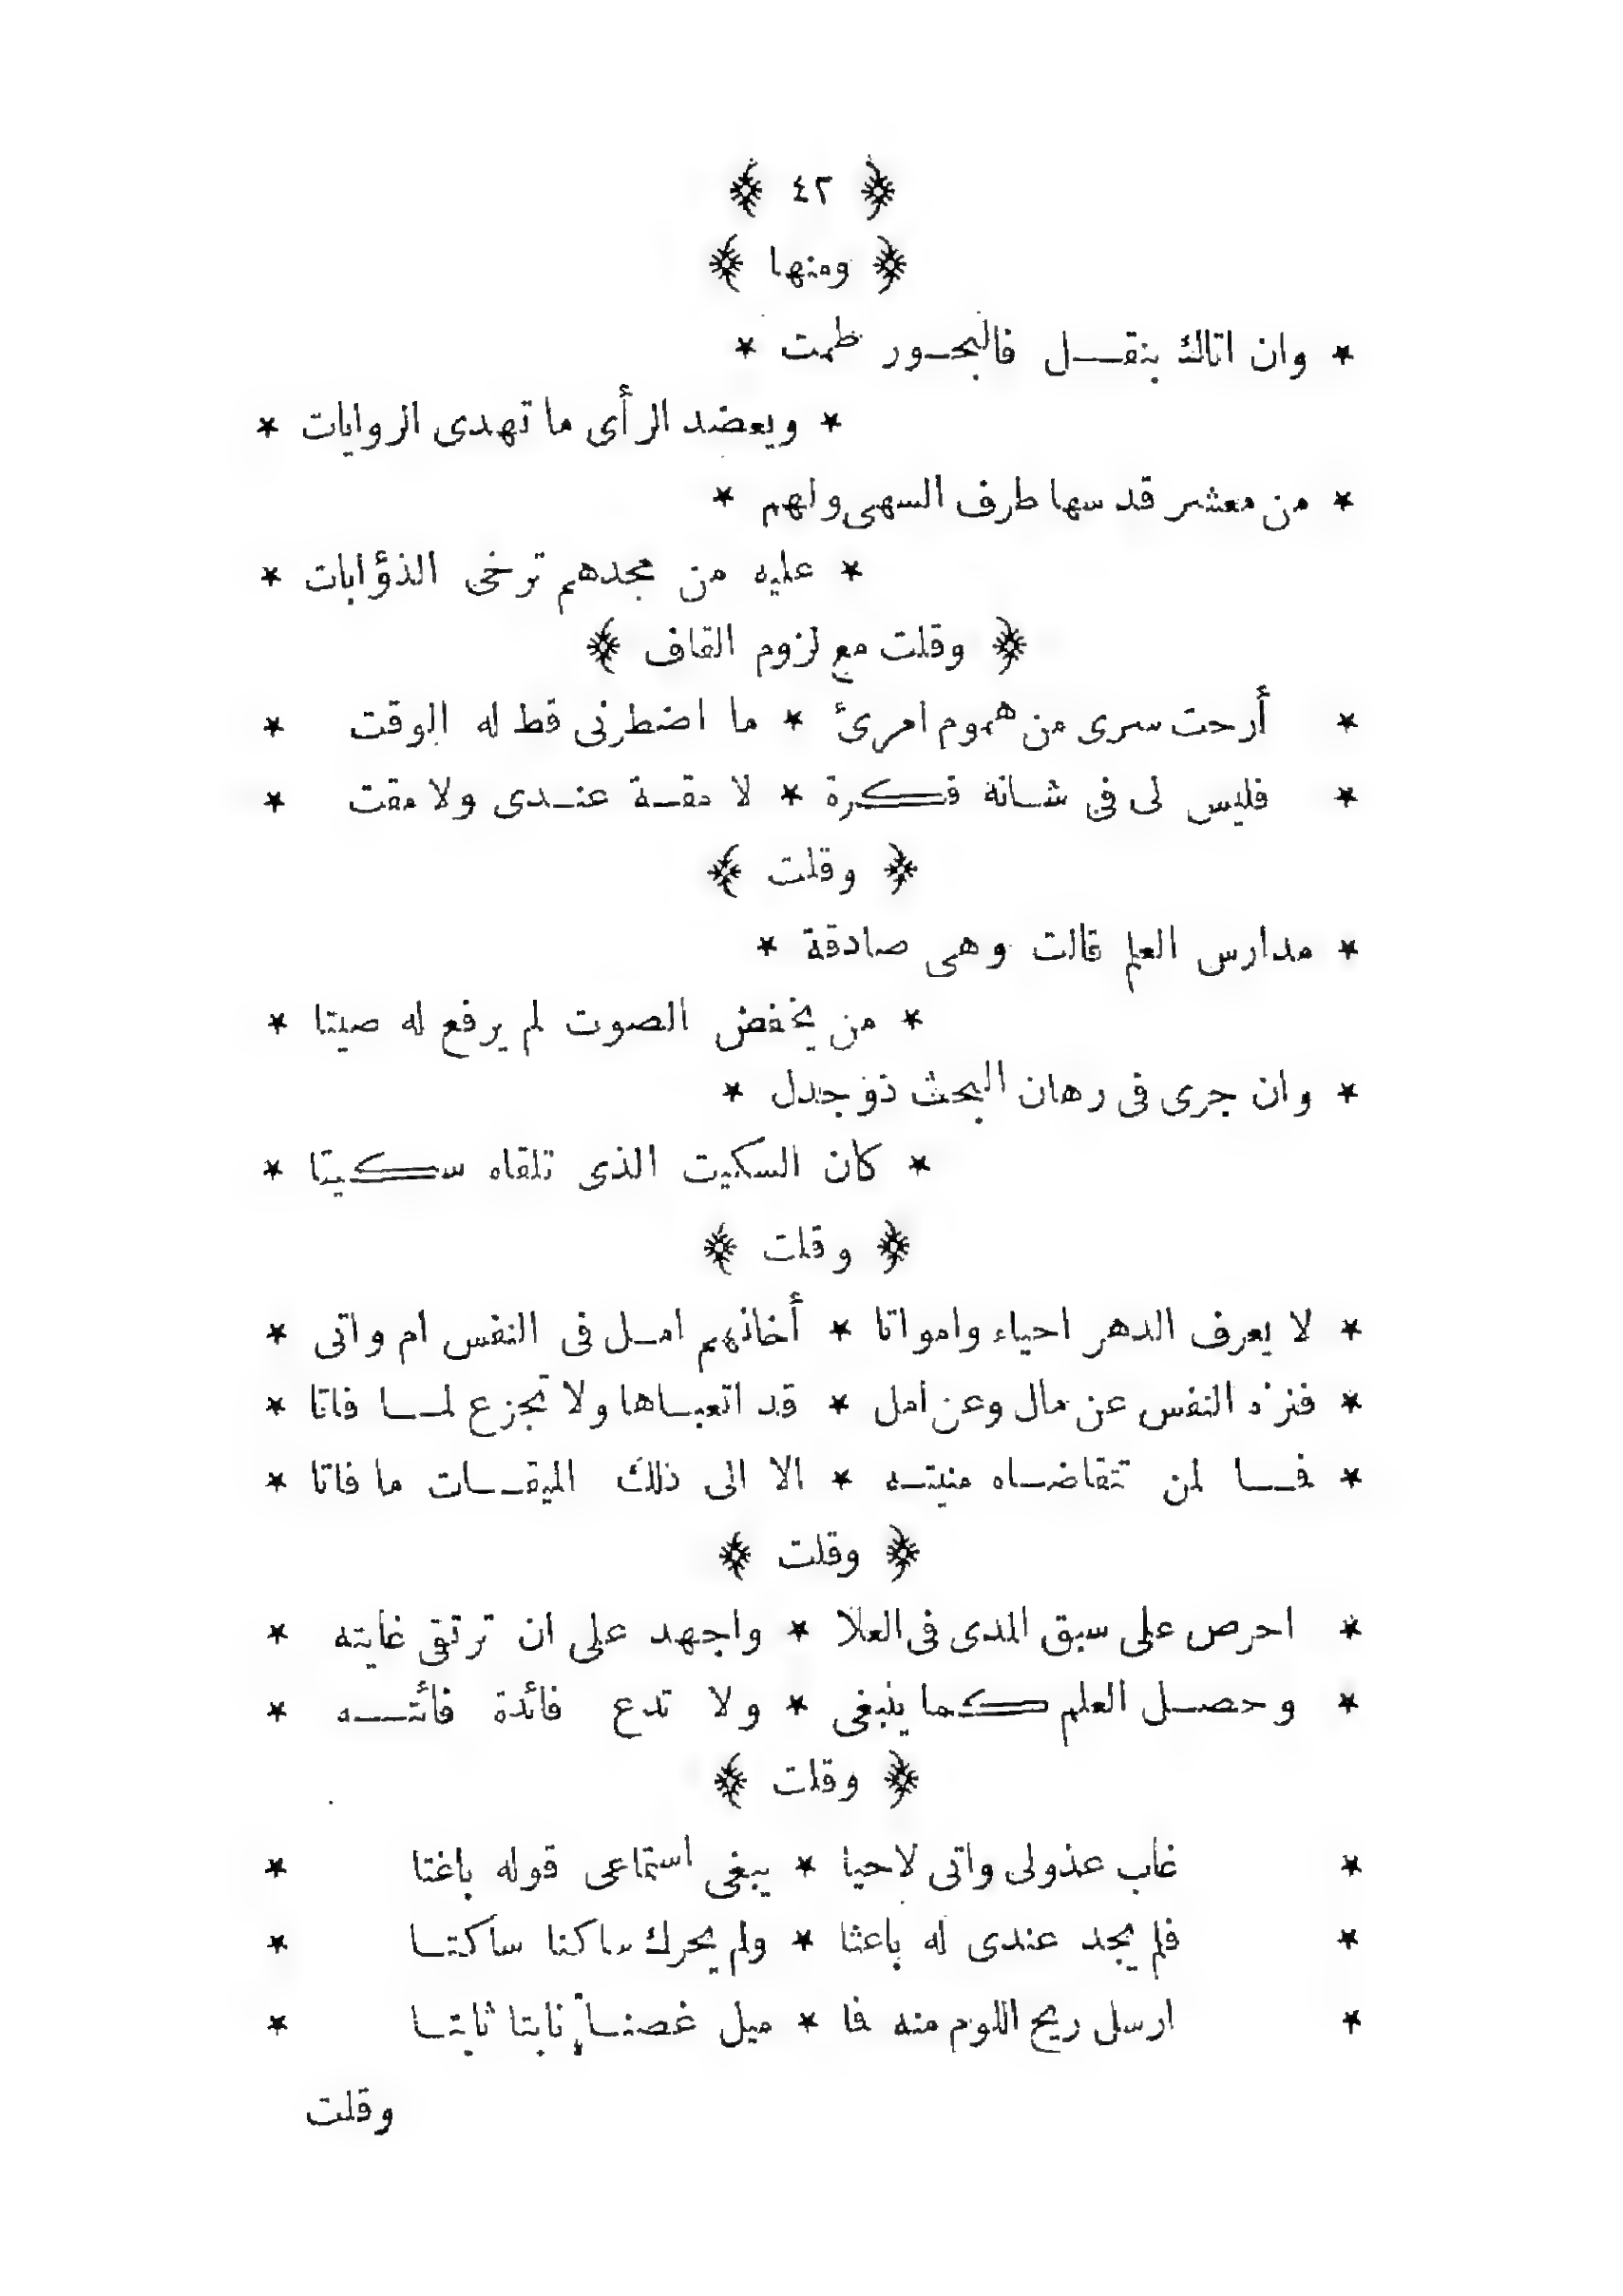 ﴿ ٤٢ ﴾
﴿ ومنها ﴾
* وان اتاك بنقـــل فالبحــور طمت *
* ويعضد الرأى ما تهدى الروايات *
* من معشر قد سها طرف السهى ولهم *
* عليه من مجدهم ترخى الذؤابات *
﴿ وقلت مع لزوم القاف ﴾
* أرحت سرى من هموم امرئ * ما اضطرنى قط له الوقت *
* فليس لى فى شــانه فــكرة * لا مقــة عنــدى ولا مقت *
﴿ وقلت ﴾
* مدارس العلم قالت وهى صادقة *
* من يخفض الصوت لم يرفع له صيتا *
* وان جرى فى رهان البحث ذو جدل *
* كان السكيت الذى تلقاه ســكيتا *
﴿ وقلت ﴾
* لا يعرف الدهر احياء وامواتا * أخانهم امــل فى النفس ام واتى *
* فنزه النفس عن مال وعن امل * قد اتعبــاها ولا تجزع لمــا فاتا *
* فمــا لمن تتقاضــاه منيتــه * الا الى ذلك الميقــات ما فاتا *
﴿ وقلت ﴾
* احرص على سبق المدى فى العلا * واجهد على ان ترتقى غايته *
* وحصــل العلم كــما ينبغى * ولا تدع فائدة فائتــه *
﴿ وقلت ﴾
* غاب عذولى واتى لاحيا * يبغى استماعى قوله باغتا *
* فلم يجد عندى له باعثا * ولم يحرك ساكنا ساكتــا *
* ارسل ريح اللوم منه فما * ميل غصنــاً نابتا ثابتــا *
وقلت